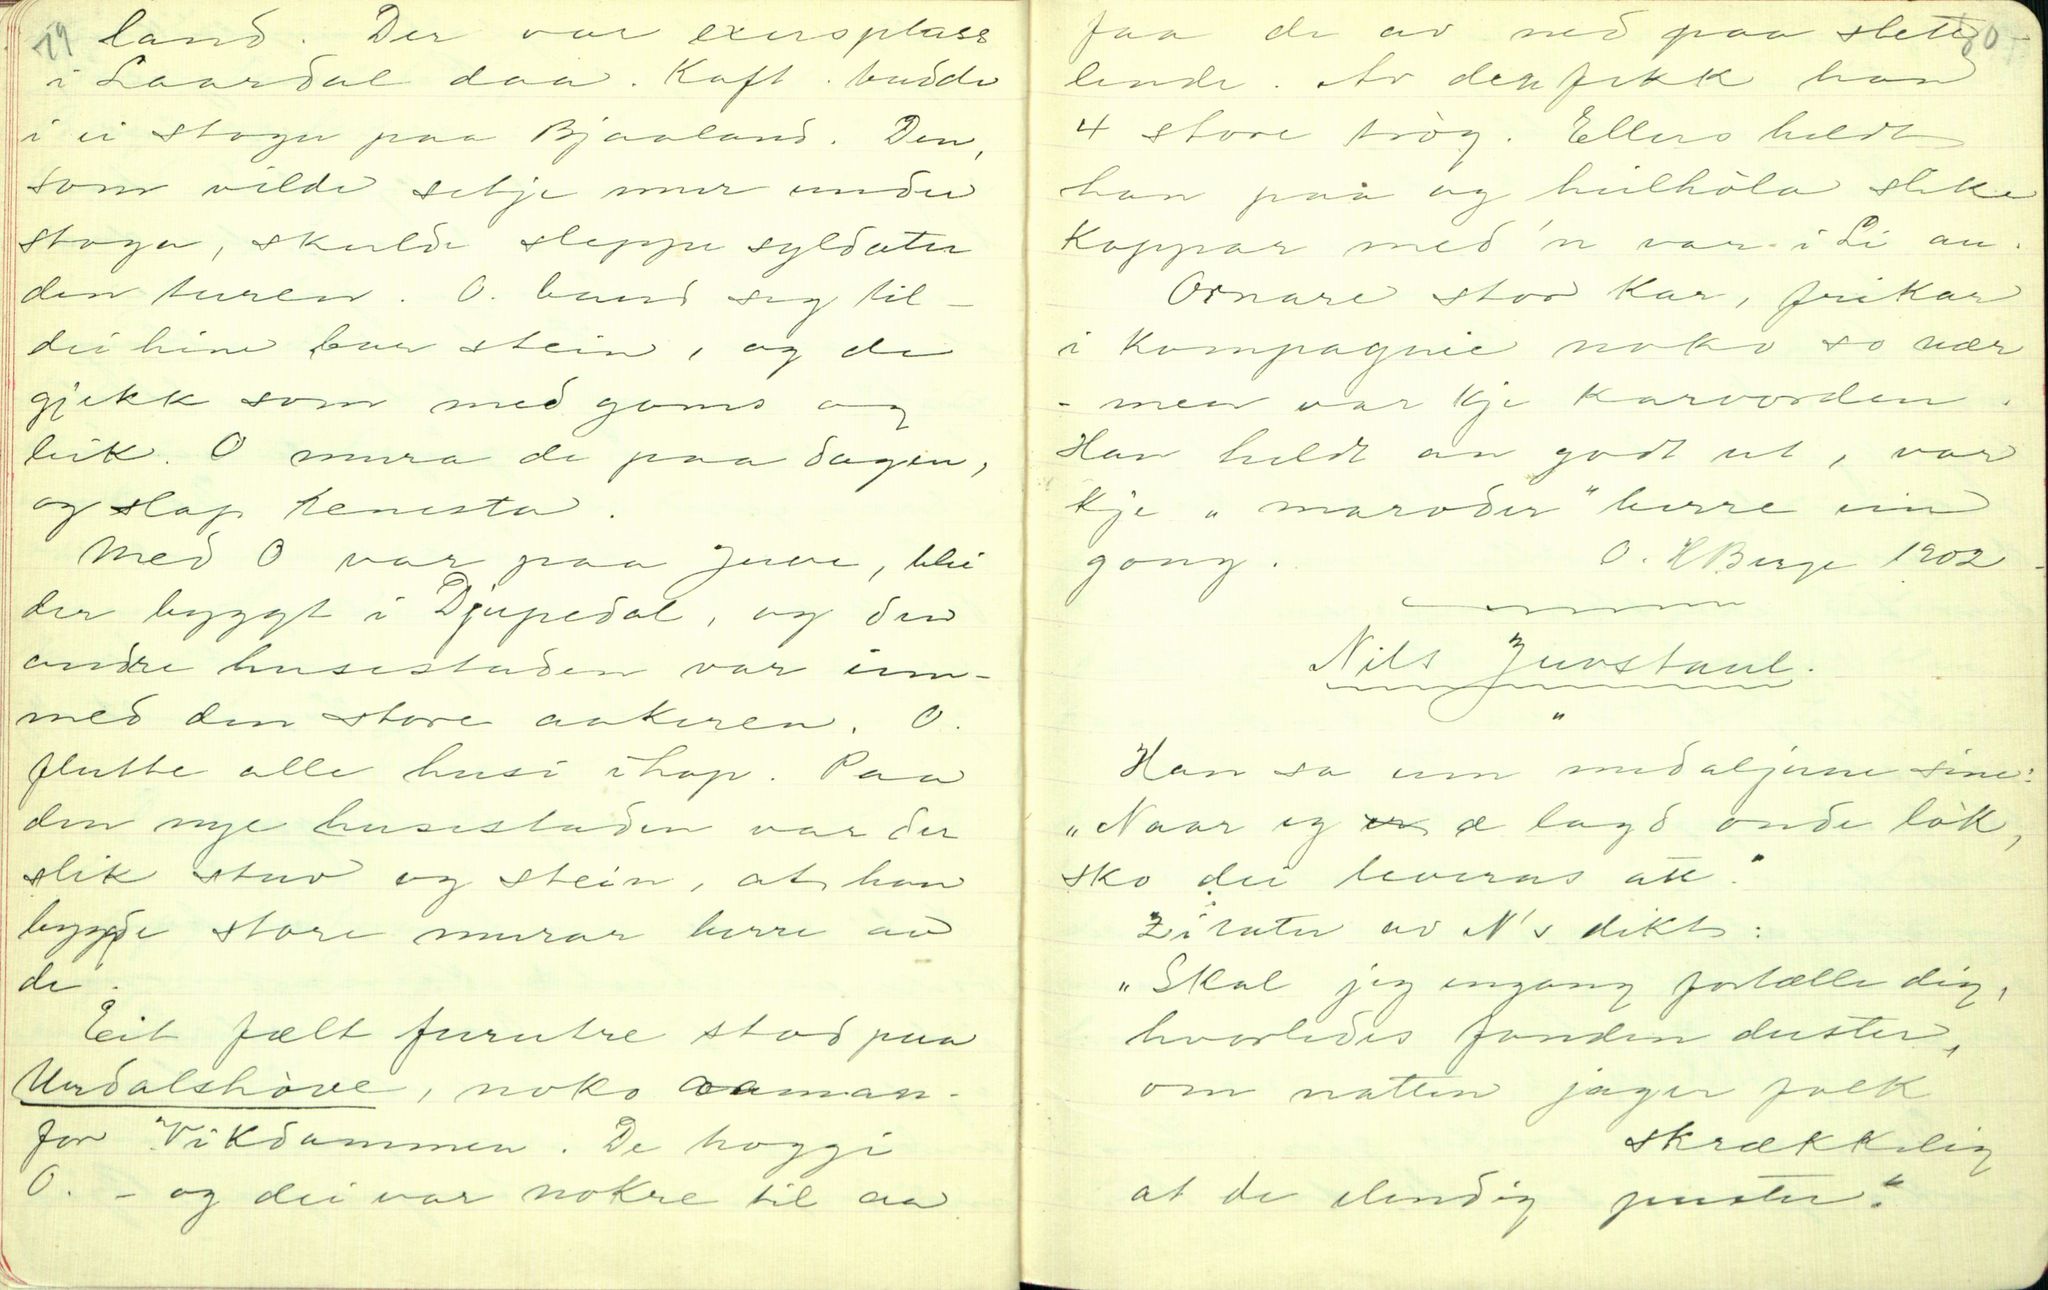 79
land. Der var exersplass
i Laardal daa. Kaft. budde
i ei stogu paa Bjaaland. Den,
som vilde setje mur under
stogu, skulde sleppe syldater
den turen. O. baud seg til –
dei hine bar stein, og de
gjekk som med gams og
leik. O mura de paa dagen,
og slap tenesta.
Med O var paa Juve, blei
der byggt i Djupedal, og den
andre husestaden var inn-
med den store aakeren. O.
flutte alle husi ihop. Paa
den nye husestaden var der
slik stuv og stein, at han
bygde store murar berre av
de.
Eit fælt furutre stod paa
Urdalshòve, noko aaman-
for Vikdammen. De hoggi
O. – og dei var nokre til aa
80
faa de av ned paa slette
lende. Av den fekk han
4 store tròg. Ellers heldt
han paa og hulhòla slike
Koppar med 'n var i Li au.
Ornare stor Kar, frikar
i Kompagnie noko so nær
– men var kje Karvorden.
Han heldt an godt ut, var
kje „maroder" berre ein
gong. O. H Berge 1902
Nils Juvstaul.
"
Han sa um medaljune sine:
„Naar eg æ lagd onde lòk,
sko dei leveras att."
Zitater av N's dikt:
„Skal jeg engang fortælle dig,
hvorledes fanden duster,
om natten jager folk
skrækkelig
at de elendig puster."